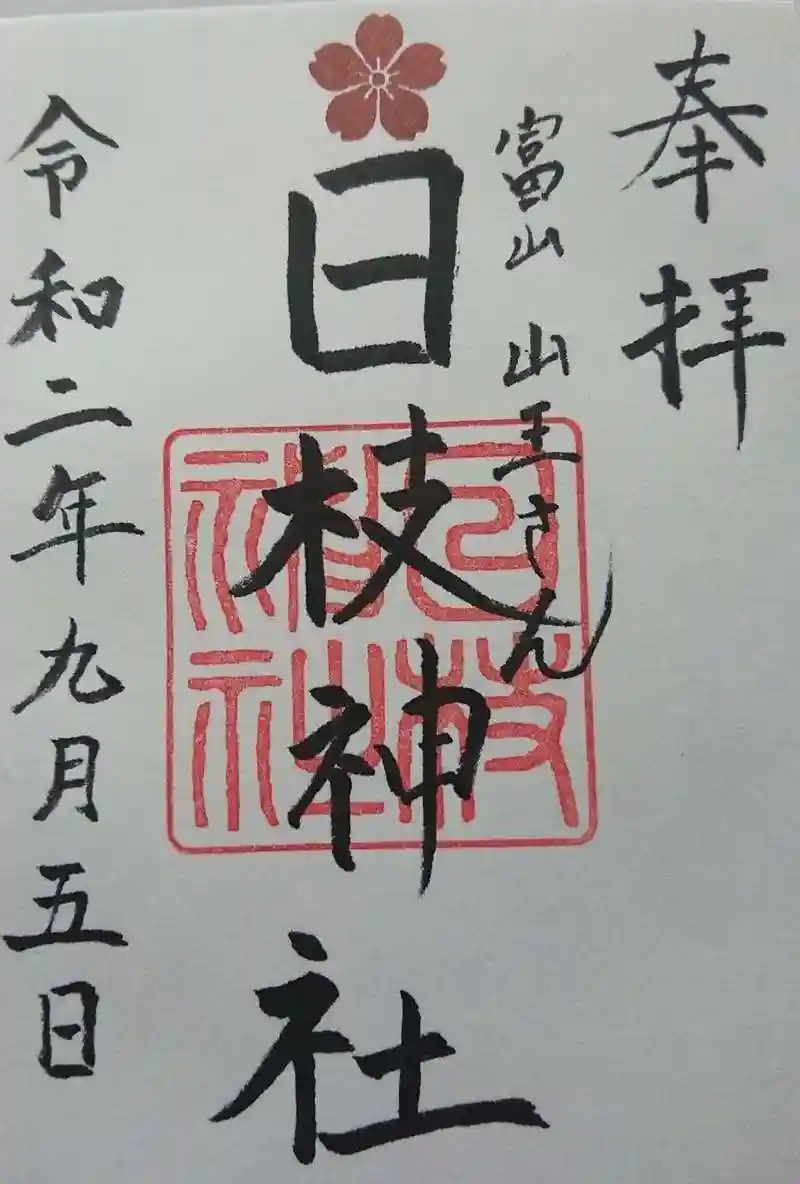 奉拝
富山 山王さん
日枝神社
日枝神社
令和二年九月五日